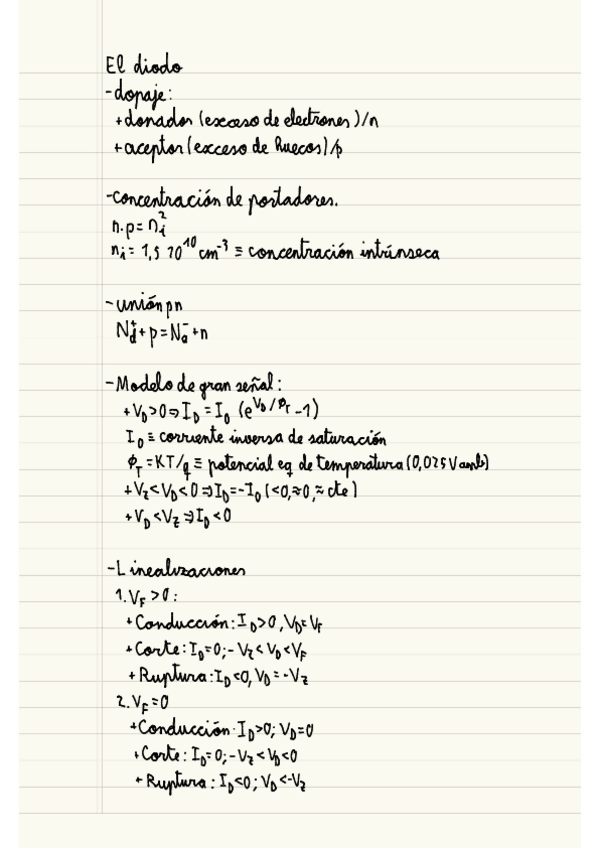 El diodo
-dopaje:
+donador (exceso de electrones)/n
+aceptor (exceso de huecos)/p
-concentración de portadores.
n.p=nᵢ²
nᵢ= 1,5 10¹⁰ cm⁻³ ≡ concentración intrínseca
-unión pn
N_d⁺+p=N_a⁻+n
-Modelo de gran señal:
+V_D>0⇒I_D=I_0 (e^(V_D/ϕ_T)-1)
I_0≡ corriente inversa de saturación
ϕ_T=KT/q≡ potencial eq de temperatura (0,025V amb)
+V_Z<V_D<0⇒I_D=-I_0 (<0,≈0,≈cte)
+V_D<V_Z⇒I_D<0
-Linealizaciones
1.V_F>0:
+Conducción: I_D>0, V_D=V_F
+Corte: I_D=0;-V_Z<V_D<V_F
+Ruptura: I_D<0, V_D=-V_Z
2.V_F=0
+Conducción: I_D>0; V_D=0
+Corte: I_D=0;-V_Z<V_D<0
+Ruptura: I_D<0; V_D<-V_Z